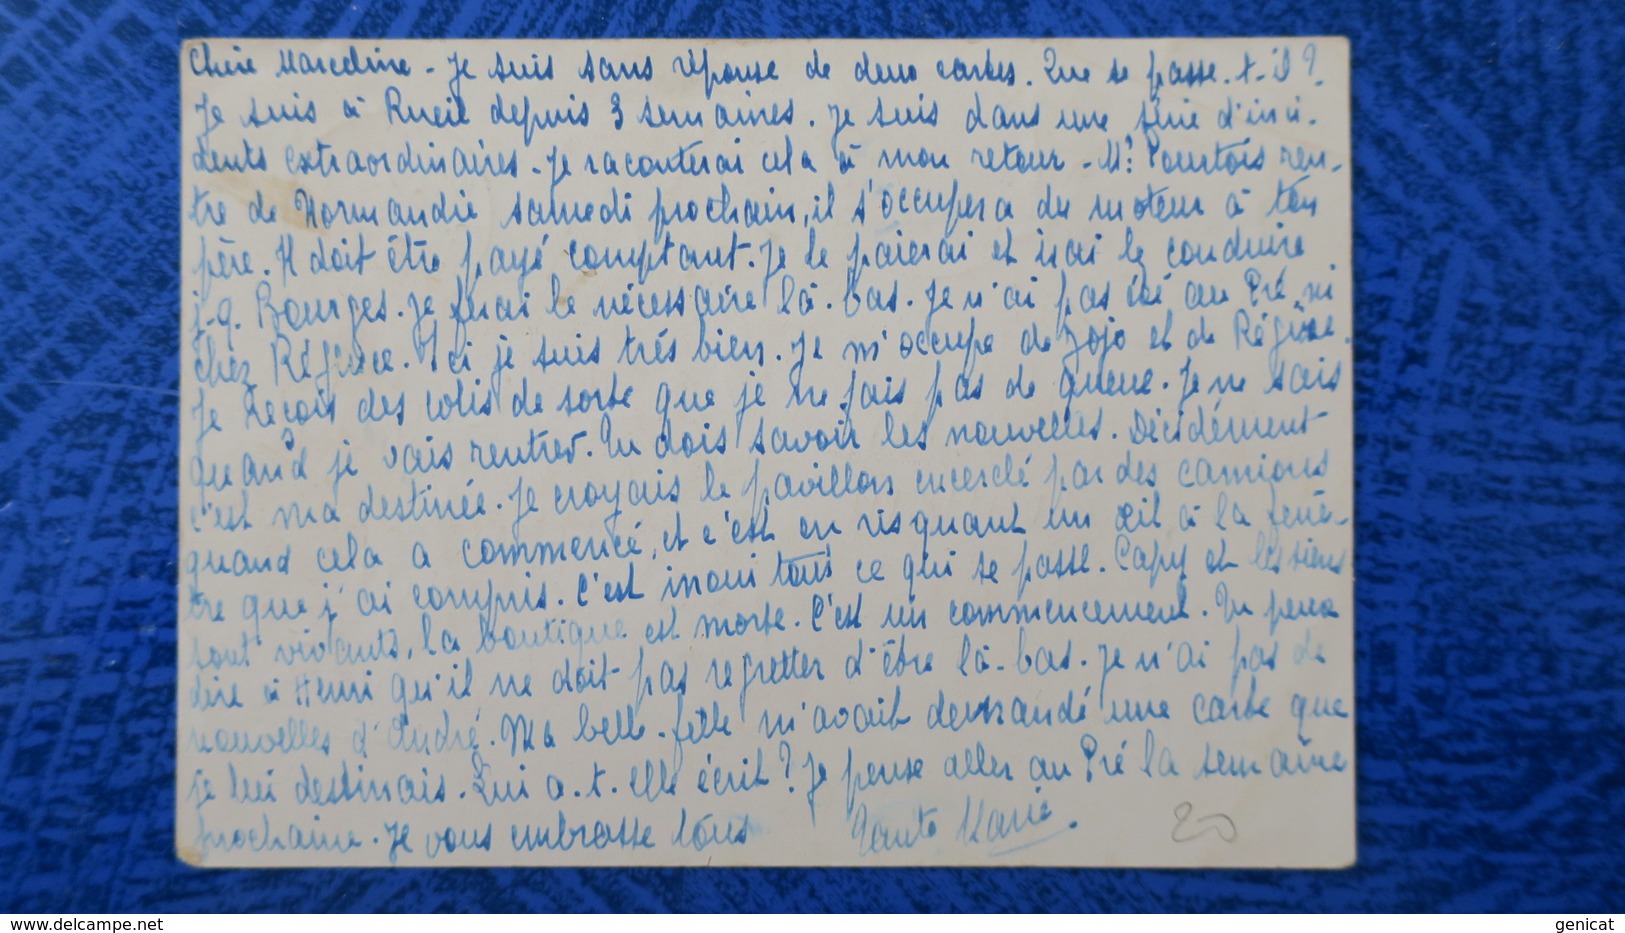 Chère Marceline - Je suis sans réponse de deux cartes. Que se passe-t-il ?
Je suis à Rueil depuis 3 semaines. Je suis dans une série d'inci-
dents extraordinaires - Je raconterai cela à mon retour - Mr Pourtois ren-
tre de Normandie samedi prochain, il s'occupera du moteur à ton
père. Il doit être payé comptant. Je le paierai et irai le conduire
j.q. Bourges. Je ferai le nécessaire là-bas. Je n'ai pas été au Pré, ni
chez Régine. Ici je suis très bien. Je m'occupe de Jojo et de Régine.
Je reçois des colis de sorte que je ne fais pas de queue. Je ne sais
quand je vais rentrer. Tu dois savoir les nouvelles. Décidément
c'est ma destinée. Je croyais le pavillon encerclé par des camions
quand cela a commencé, et c'est en risquant un œil à la fenê-
tre que j'ai compris. C'est inoui tout ce qui se passe. Capy et les siens
sont vivants, la boutique est morte. C'est un commencement. Tu peux
dire à Henri qu'il ne doit pas regretter d'être là-bas. Je n'ai pas de
nouvelles d'André. Ma belle-fille m'avait demandé une carte que
je lui destinais. Lui a-t-elle écrit ? Je pense aller au Pré la semaine
prochaine. Je vous embrasse tous Tante Marie.
20
genicat
delcampe.net